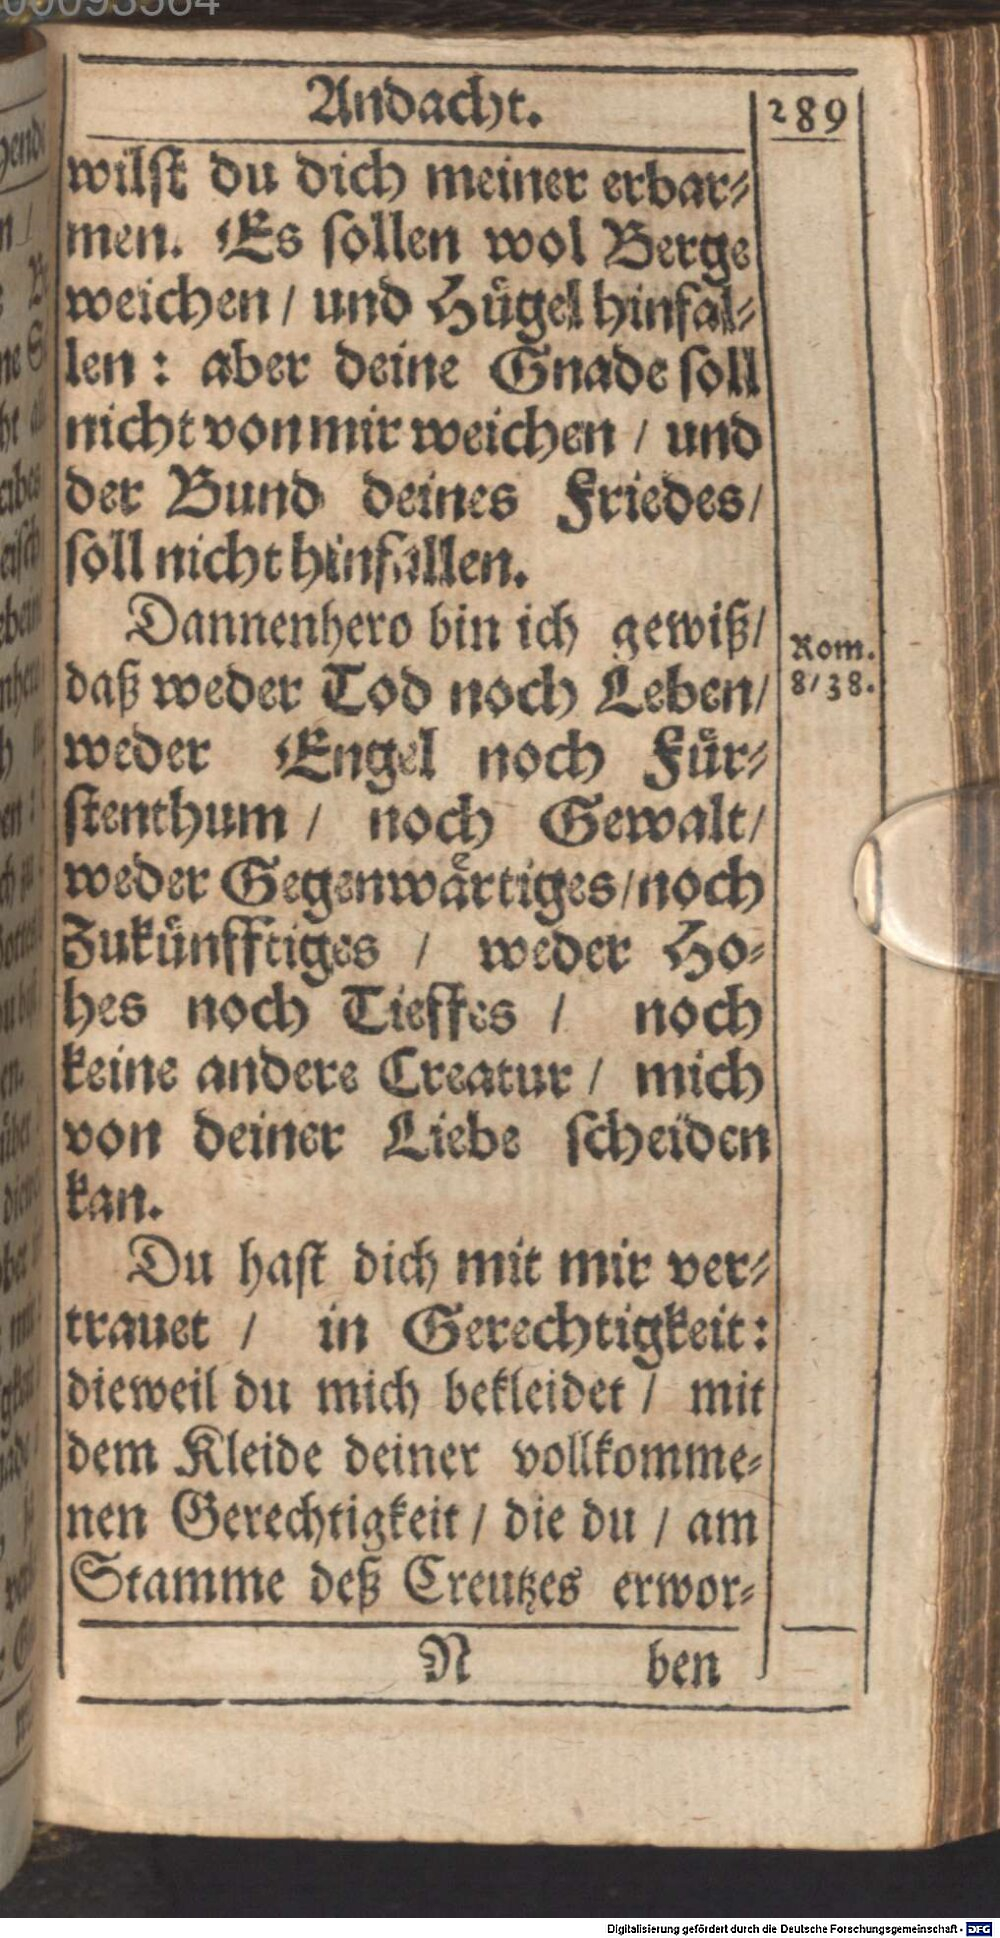 Andacht. 289
wilst du dich meiner erbar⸗
men. Es sollen wol Berge
weichen / und Hügel hinfal⸗
len : aber deine Gnade soll
nicht von mir weichen / und
der Bund deines Friedes/
soll nicht hinfallen.
Dannenhero bin ich gewiß/
daß weder Tod noch Leben/
weder Engel noch Für⸗
stenthum / noch Gewalt/
weder Gegenwärtiges/noch
Zukünfftiges / weder Ho⸗
hes noch Tieffes / noch
keine andere Creatur / mich
von deiner Liebe scheiden
kan.
Rom.
8/38.
Du hast dich mit mir ver⸗
trauet / in Gerechtigkeit:
dieweil du mich bekleidet / mit
dem Kleide deiner vollkomme⸗
nen Gerechtigkeit / die du / am
Stamme deß Creutzes erwor⸗
N ben
Digitalisierung gefördert durch die Deutsche Forschungsgemeinschaft - DFG